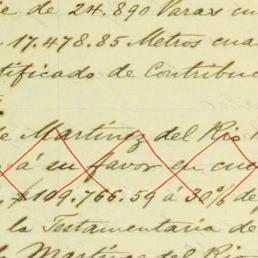 ie de 24.890 Varas cu
17.478.85 Metros cua
tificado de Contribuc
e Martínez del Rio
á su favor en cuc
$109.766.59 á 30% de
la Testamentaria de
Martínez del Rio